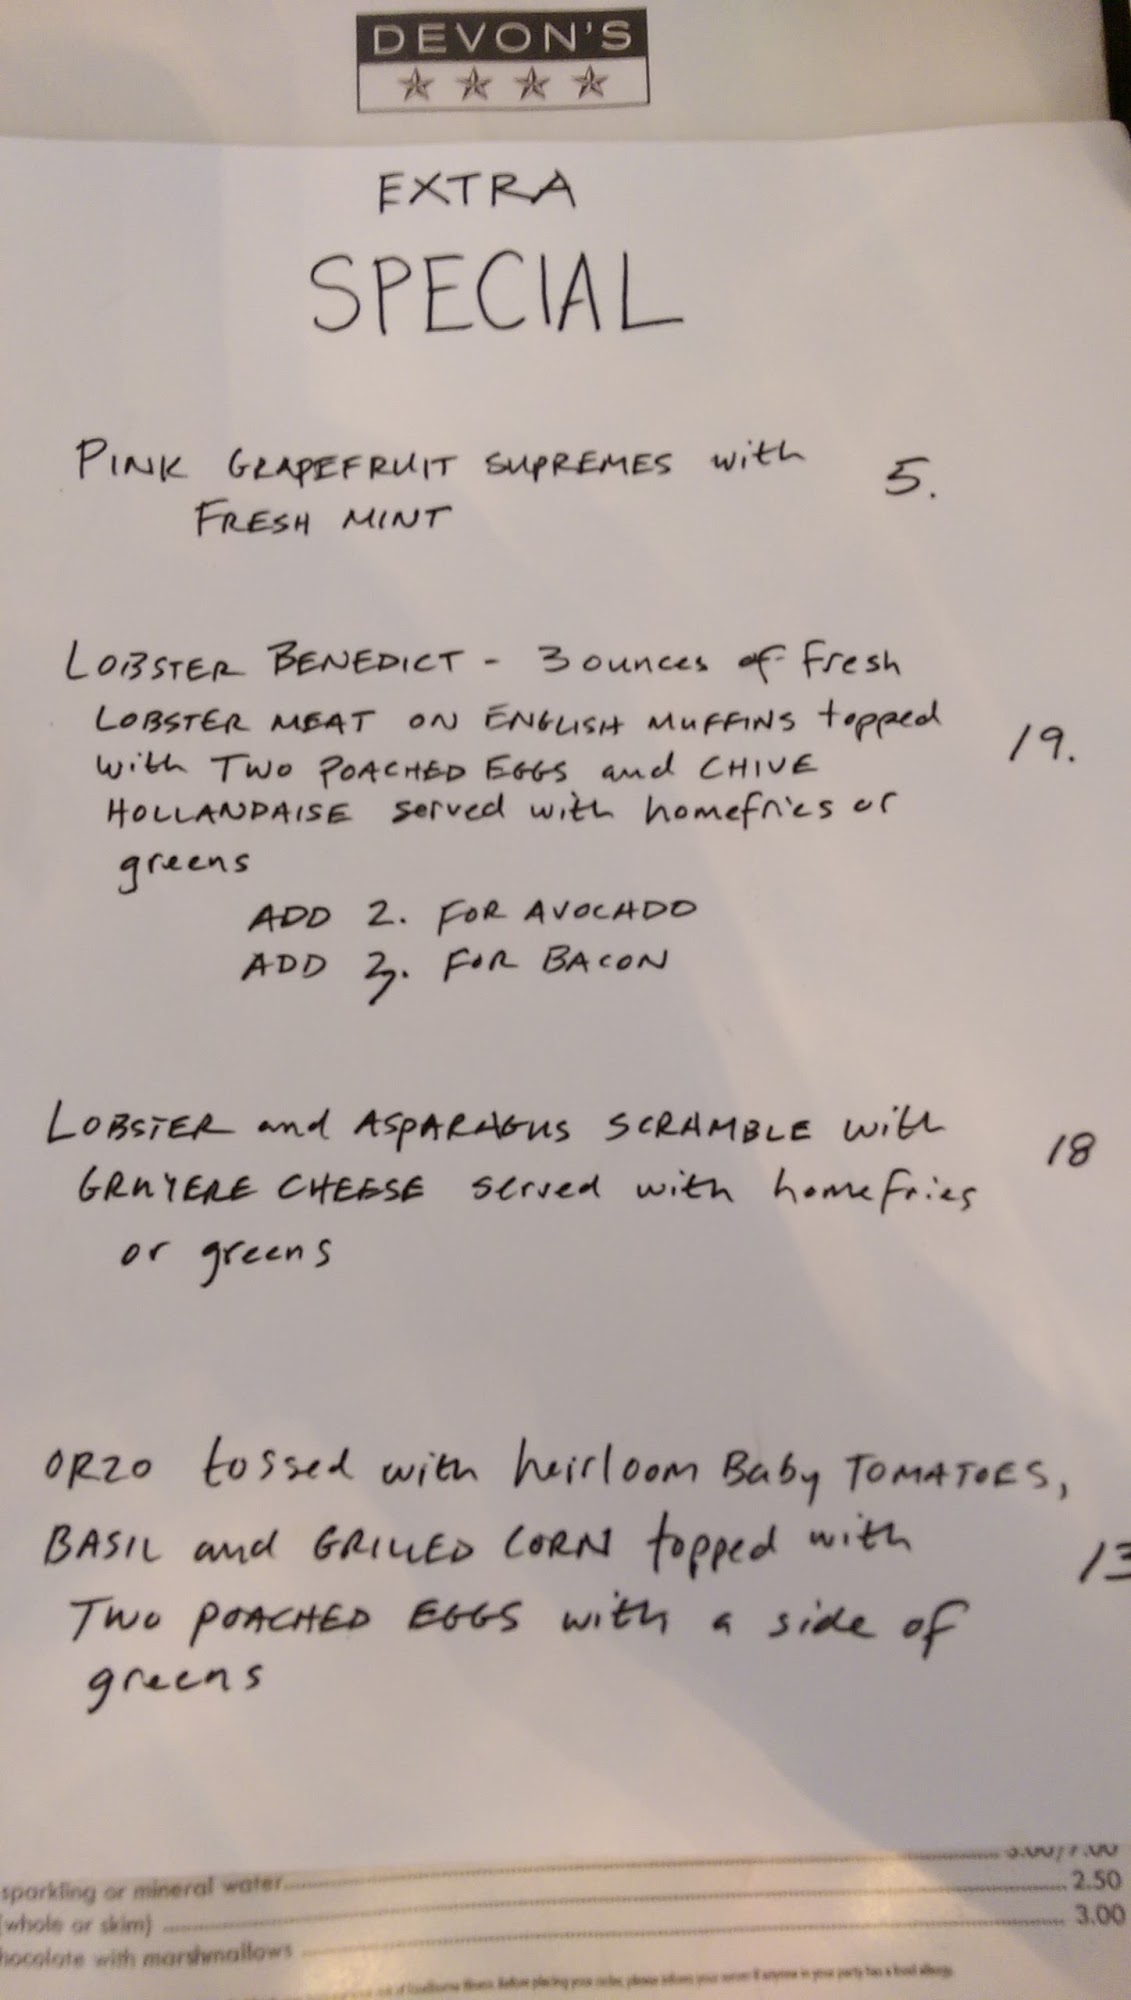 DEVON'S
EXTRA
SPECIAL
PINK GRAPEFRUIT SUPREMES with 5.
FRESH MINT
LOBSTER BENEDICT - 3 ounces of fresh
LOBSTER MEAT ON ENGLISH MUFFINS topped 19.
with TWO POACHED EGGS and CHIVE
HOLLANDAISE served with homefries or
greens
ADD 2. FOR AVOCADO
ADD 3. FOR BACON
LOBSTER and ASPARAGUS SCRAMBLE with 18
GRUYERE CHEESE served with homefries
or greens
ORZO tossed with heirloom Baby TOMATOES,
BASIL and GRILLED CORN topped with 13
TWO POACHED EGGS with a side of
greens
sparkling or mineral water 3.00/7.00
(whole or skim) 2.50
hocolate with marshmallows 3.00
risk of foodborne illness. Before placing your order, please inform your server if anyone in your party has a food allergy.